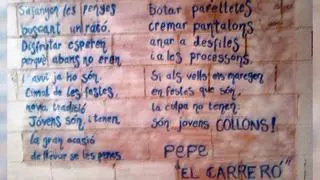 Safanyon les penges
buscant un rató.
Disfrutar esperen
perquè abans no eren,
i avui ja ho són.
Cimal de les festes,
nova tradició
Jóvens són, i tenen
la gran ocasió
de llevar-se les penes.
botar paretetes
cremar pantalons
anar a desfiles
i a les processons.
Si als vells ens maregen
en festes que són,
la culpa no tenen:
són jóvens COLLONS!
PEPE
"EL CARRERÓ"